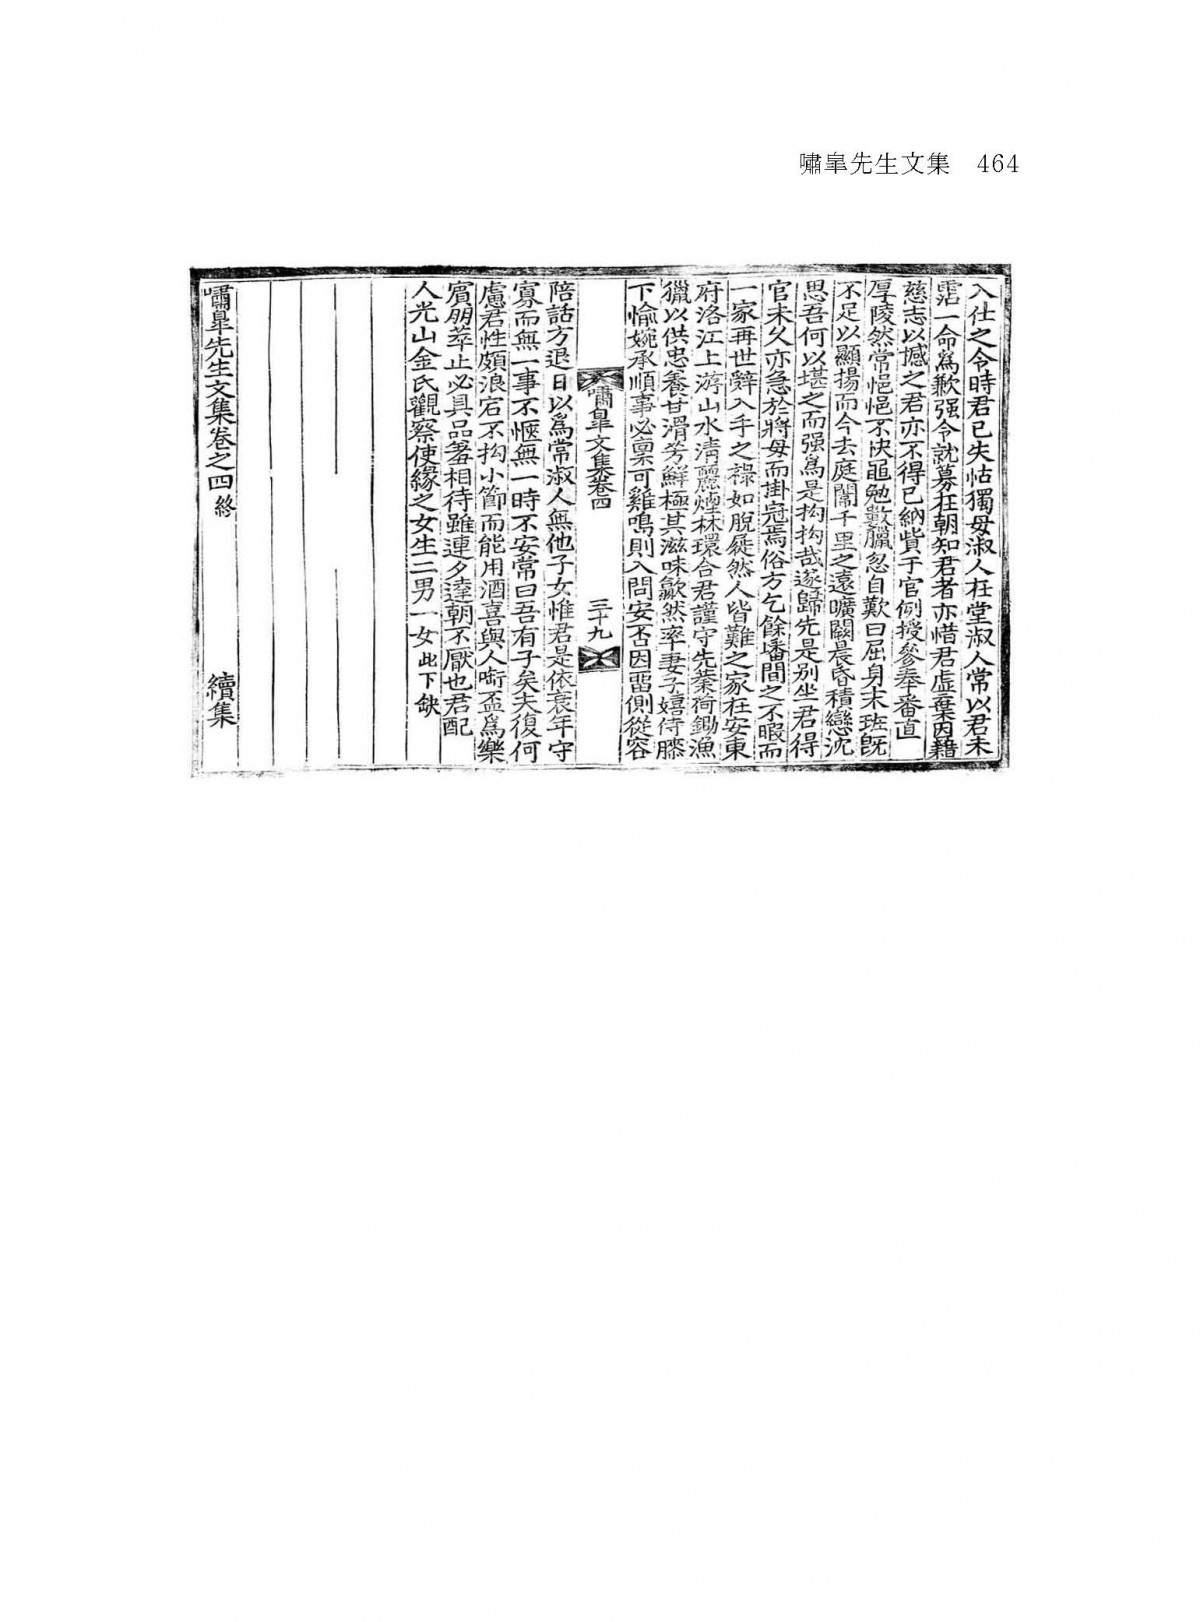 嘯皐先生文集 464
入仕之令時君已失怙獨母淑人在堂淑人常以君未
霑一命爲歉强令就募在朝知君者亦惜君虛棄因藉
慈志以撼之君亦不得已納貲于官例授參奉番直
厚陵然常悒悒不快黽勉數臘忽自歎曰屈身末班旣
不足以顯揚而今去庭闈千里之遠曠闕晨昏積戀沈
思吾何以堪之而强爲是拘拘哉遂歸先是別坐君得
官未久亦急於將母而掛冠焉俗方乞餘墦間之不暇而
一家再世辭入手之祿如脫屣然人皆難之家在安東
府洛江上游山水淸麗煙林環合君謹守先業荷鋤漁
獵以供忠養甘滑芳鮮極其滋味歙然率妻子嬉侍膝
下愉婉承順事必稟可雞鳴則入問安否因留側從容
嘯皐文集卷四 三十九
陪話方退日以爲常淑人無他子女惟君是依衰年守
寡而無一事不愜無一時不安常曰吾有子矣夫復何
慮君性頗浪宕不拘小節而能用酒喜與人啣盃爲樂
賓朋萃止必具品羞相待雖連夕達朝不厭也君配
人光山金氏觀察使緣之女生二男一女此下缺
嘯皐先生文集卷之四終 續集